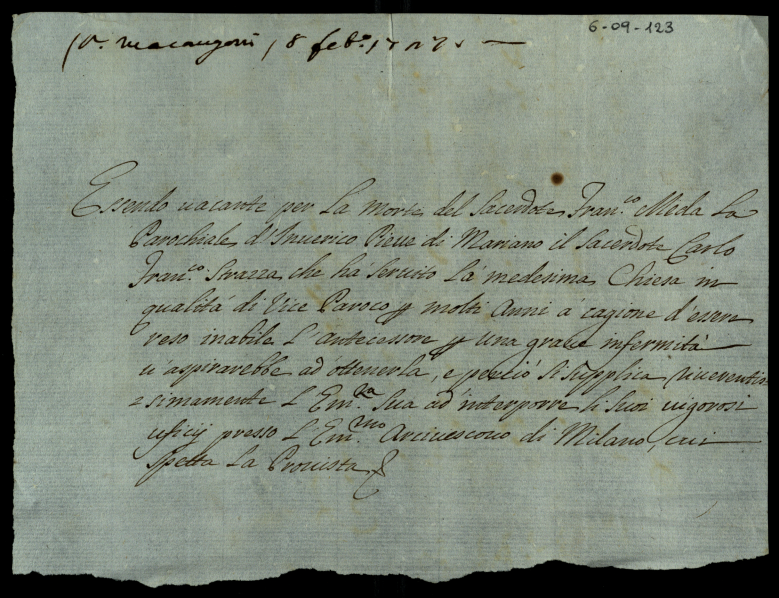 6-09-123
8 feb.º
Essendo vacante per La morte del Sacerdote Fran.co Meda La
Parochiale d'Inverico Pieve di Mariano il Sacerdote Carlo
Fran.co Strazza che há Servito La medesima Chiesa in
qualitá di Vice Paroco p molti Anni á cagione d'essere
reso inabile L'antecessore p una grave infermitá
v'aspirarebbe ad'ottenerla, e perció Si Supplica riverentis
=simamente L'Em.za Sua ad'interporre li Suoi vigorosi
uficij presso L'Em.mo Arcivescovo di Milano, cui
Spetta La Provista